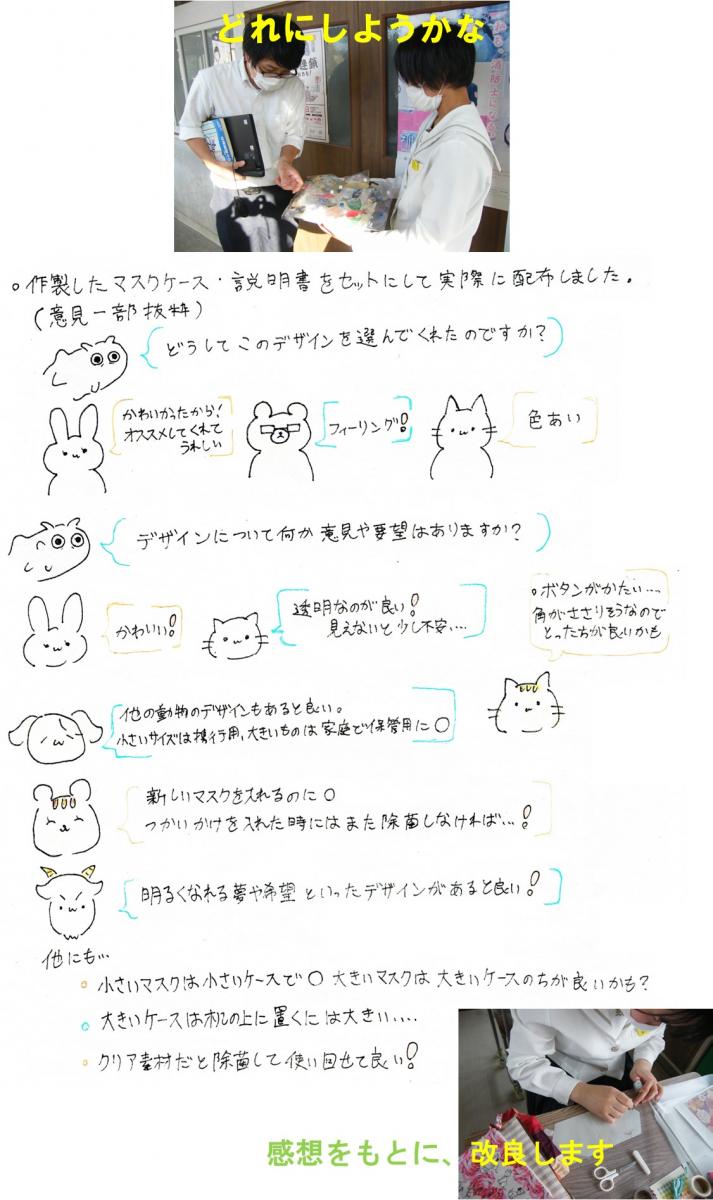 どれにしようかな
。作製したマスクケース・説明書をセットにして実際に配布しました。
(意見一部抜粋)
どうしてこのデザインを選んでくれたのですか?
かわいかったから!
オススメしてくれて
うれしい
フィーリング!
色あい
デザインについて何か意見や要望はありますか?
かわいい!
透明なのが良い!
見えないと少し不安….
。ボタンがかたい….
角がささりそうなので
とったちが良いかも
他の動物のデザインもあると良い。
小さいサイズは携行用,大きいものは家庭で保管用に○
新しいマスクを入れるのに○
つかいかけを入れた時にはまた除菌しなければ…!
明るくなれる夢や希望といったデザインがあると良い!
他にも…
。小さいマスクは小さいケースで○ 大きいマスクは大きいケースのちが良いかも?
。大きいケースは机の上に置くには大きい….
。クリア素材だと除菌して使い回せて良い!
感想をもとに、改良します